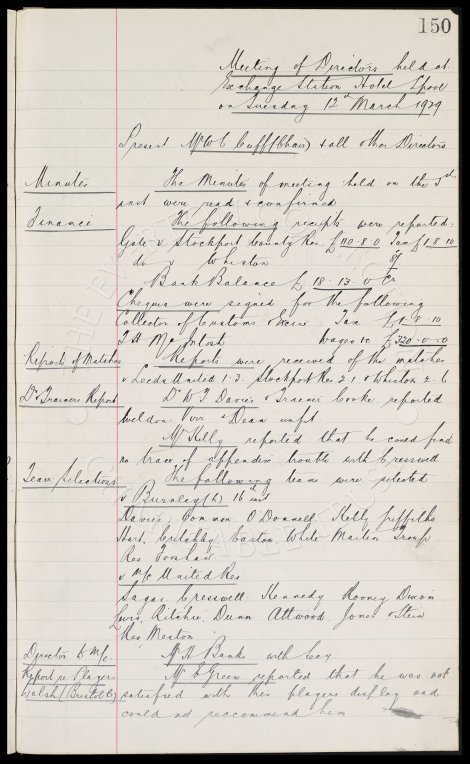 150
Meeting of Directors held at
Exchange Station Hotel Lpool
on Tuesday 12th March 1929
Present Mr W C Cuff (Chair) & all other Directors
Minutes The Minutes of meeting held on the 5th
inst were read & confirmed
Finance The following receipts were reported.
Gate v Stockport County Res £110.8.0 Tax £1.8.10
do v Whiston
Bank Balance £ 18.13.0 Cr
Cheques were signed for the following
Collector of Customs & Excise Tax £1.8.10
T H McIntosh Wages &c £320.0.0
Reports of Matches Reports were received of the matches
v Leeds United 1-3. Stockport Res 2-1 & Whiston 2-6
Drs & Trainers Report Dr W J Davies & Trainer Cooke reported
Weldon & Dean unfit
Mr Kelly reported that he could find
no trace of appendix trouble with Cresswell
Team Selections The following teams were selected
v Burnley (h) 16th inst
Davies Common O'Donnell. Kelly Griffiths
Hart. Critchley Easton. White Martin Troup
Res Forshaw
v M/c United Res
Sagar Cresswell. Kennedy Rooney Dixon
Lewis Ritchie. Dunn Attwood. Jones & Stein
Res Meston
Director to M/c. Mr H Banks with Coy.
Report re Players Mr E Green reported that he was not
Walsh (Bristol C) satisfied with this players display and
could not reccommend him